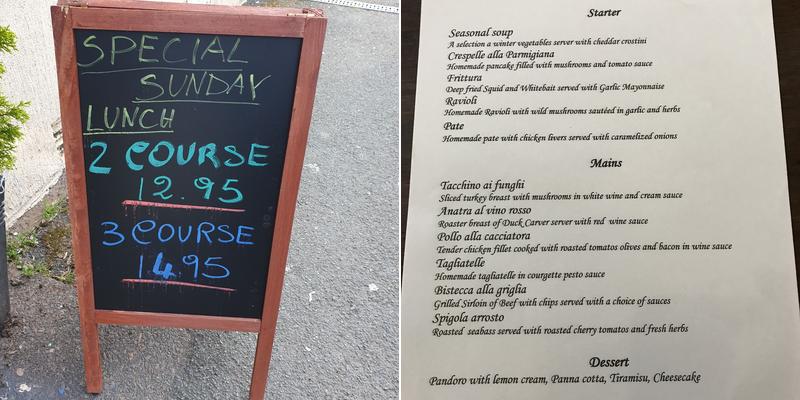 SPECIAL
SUNDAY
LUNCH
2 COURSE
12.95
3 COURSE
14.95
Starter
Seasonal soup
A selection a winter vegetables server with cheddar crostini
Crespelle alla Parmigiana
Homemade pancake filled with mushrooms and tomato sauce
Frittura
Deep fried Squid and Whitebait served with Garlic Mayonnaise
Ravioli
Homemade Ravioli with wild mushrooms sautéed in garlic and herbs
Pate
Homemade pate with chicken livers served with caramelized onions
Mains
Tacchino ai funghi
Sliced turkey breast with mushrooms in white wine and cream sauce
Anatra al vino rosso
Roaster breast of Duck Carver server with red wine sauce
Pollo alla cacciatora
Tender chicken fillet cooked with roasted tomatos olives and bacon in wine sauce
Tagliatelle
Homemade tagliatelle in courgette pesto sauce
Bistecca alla griglia
Grilled Sirloin of Beef with chips served with a choice of sauces
Spigola arrosto
Roasted seabass served with roasted cherry tomatos and fresh herbs
Dessert
Pandoro with lemon cream, Panna cotta, Tiramisu, Cheesecake